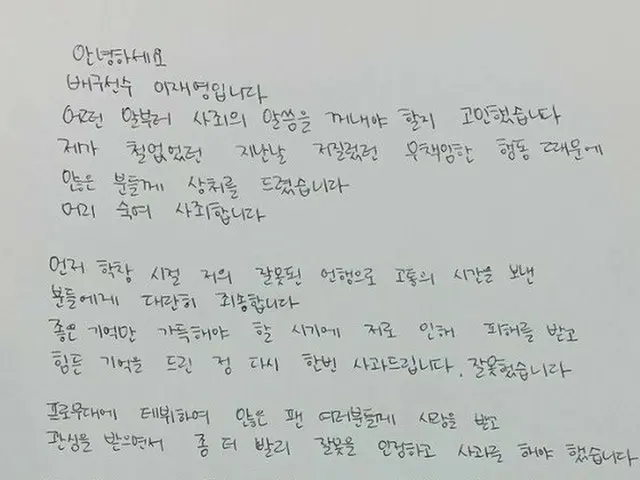 안녕하세요
배구선수 이재영입니다
어떤 말부터 사죄의 말씀을 꺼내야 할지 고민했습니다
제가 철없었던 지난날 저질렀던 무책임한 행동 때문에
많은 분들께 상처를 드렸습니다
머리 숙여 사죄합니다
먼저 학창 시절 저의 잘못된 언행으로 고통의 시간을 보낸
분들에게 대단히 죄송합니다
좋은 기억만 가득해야 할 시기에 저로 인해 피해를 받고
힘든 기억을 드린 점 다시 한번 사과드립니다. 잘못했습니다
프로무대에 데뷔하여 많은 팬 여러분들께 사랑을 받고
관심을 받으면서 좀 더 빨리 잘못을 인정하고 사과를 해야 했습니다